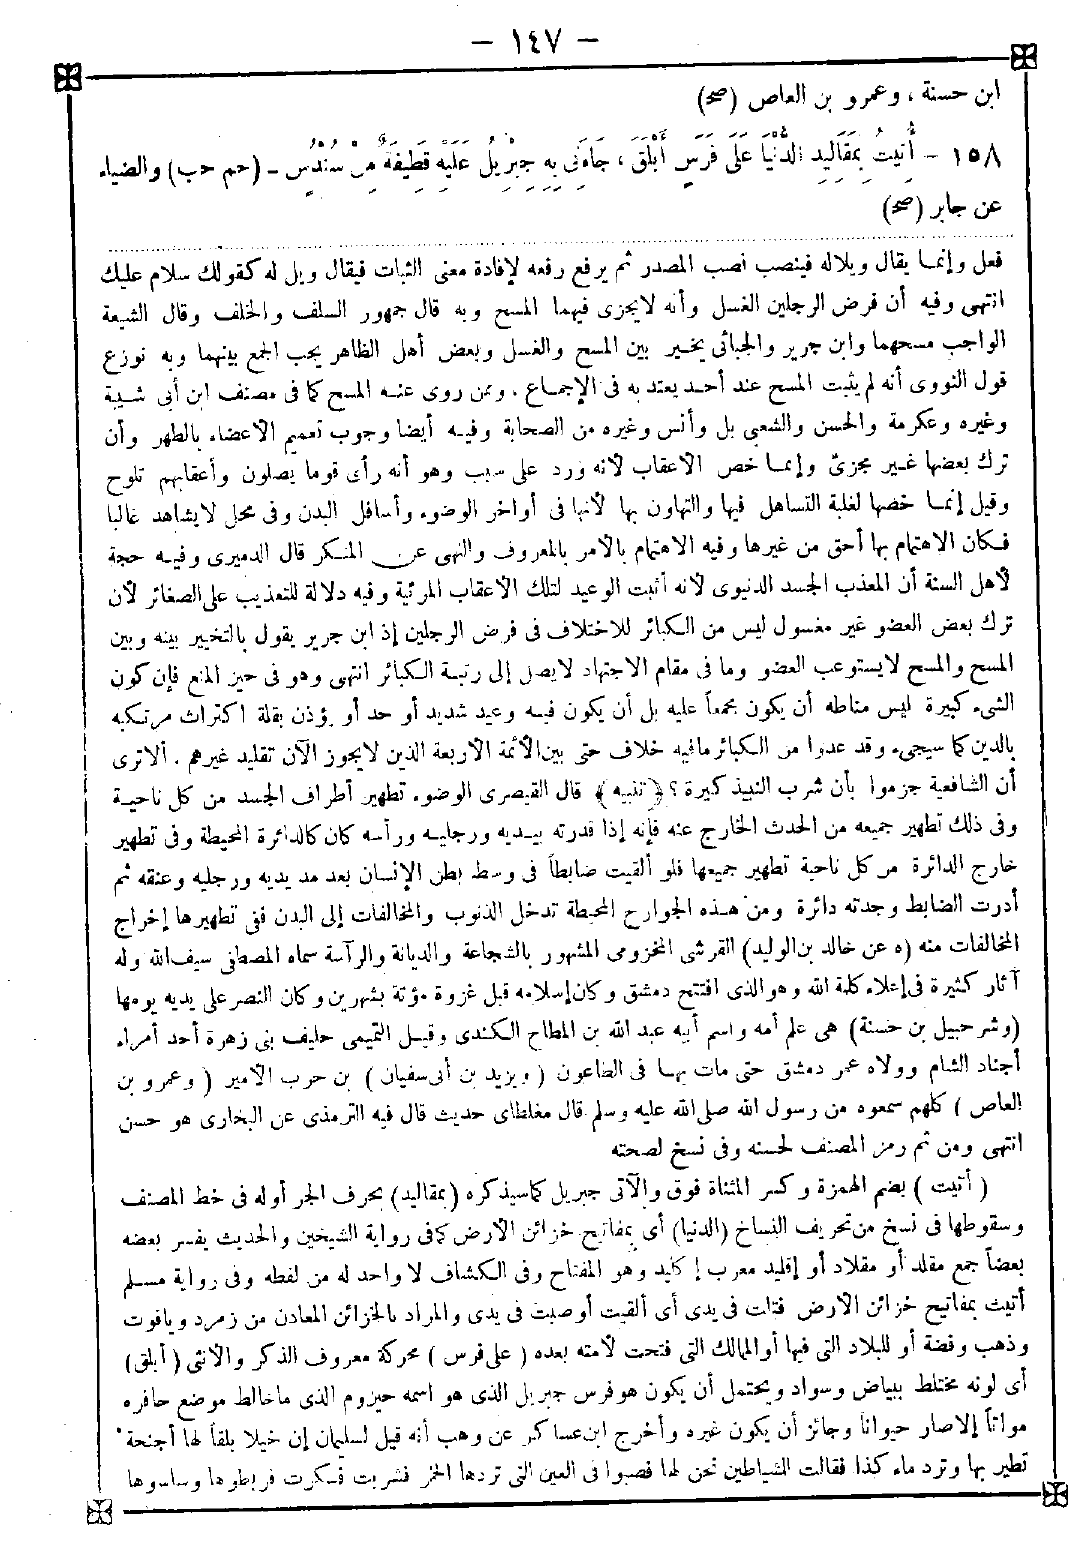 – ١٤٧ –
ابن حسنة ، وعمرو بن العاص (صح)
١٥٨ – أُتِيتُ بِمَقَالِيدِ الدُّنْيَا عَلَى فَرَسٍ أَبْلَقَ ، جَاءَنِى بِهِ جِبْرِيلُ عَلَيْهِ قَطِيفَةٌ مِنْ سُنْدُسٍ – (حم حب) والضياء
عن جابر (صح)
فعل وإنما يقال ويلاله فينصب نصب المصدر ثم يرفع رفعه لإفادة معنى الثبات فيقال ويل له كقولك سلام عليك
انتهى وفيه أن فرض الرجلين الغسل وأنه لايجزى فيهما المسح وبه قال جمهور السلف والخلف وقال الشيعة
الواجب مسحهما وابن جرير والجبائى يخير بين المسح والغسل وبعض أهل الظاهر يجب الجمع بينهما وبه نوزع
قول النووى أنه لم يثبت المسح عند أحد يعتد به فى الإجماع . وممن روى عنه المسح كما فى مصنف ابن أبى شيبة
وغيره وعكرمة والحسن والشعبى بل وأنس وغيره من الصحابة وفيه أيضا وجوب تعميم الأعضاء بالطهر وأن
ترك بعضها غير مجزئ وإنما خص الأعقاب لأنه ورد على سبب وهو أنه رأى قوما يصلون وأعقابهم تلوح
وقيل إنما خصها لغلبة التساهل فيها والتهاون بها لأنها فى أواخر الوضوء وأسافل البدن وفى محل لايشاهد غالبا
فكان الاهتمام بها أحق من غيرها وفيه الاهتمام بالأمر بالمعروف والنهى عن المنكر قال الدميرى وفيه حجة
لأهل السنة أن المعذب الجسد الدنيوى لأنه أثبت الوعيد لتلك الأعقاب المرئية وفيه دلالة للتعذيب على الصغائر لأن
ترك بعض العضو غير مغسول ليس من الكبائر للاختلاف فى فرض الرجلين إذ ابن جرير يقول بالتخيير بينه وبين
المسح والمسح لايستوعب العضو وما فى مقام الاجتهاد لايصل إلى رتبة الكبائر انتهى وهو فى حيز المنع فإن كون
الشىء كبيرة ليس مناطه أن يكون مجمعاً عليه بل أن يكون فيه وعيد شديد أو حد أو يؤذن بقلة اكتراث مرتكبه
بالدين كما سيجىء وقد عدوا من الكبائر مافيه خلاف حتى بين الأئمة الأربعة الذين لايجوز الآن تقليد غيرهم . ألاترى
أن الشافعية جزموا بأن شرب النبيذ كبيرة ؟ ﴿ تنبيه ﴾ قال القيصرى الوضوء تطهير أطراف الجسد من كل ناحية
وفى ذلك تطهير جميعه من الحدث الخارج عنه فإنه إذا قدرته بيديه ورجليه ورأسه كان كالدائرة المحيطة وفى تطهير
خارج الدائرة من كل ناحية تطهير جميعها فلو ألقيت ضابطاً فى وسط بطن الإنسان بعد مد يديه ورجليه وعنقه ثم
أدرت الضابط وجدته دائرة ومن هذه الجوارح المحيطة تدخل الذنوب والمخالفات إلى البدن ففى تطهيرها إخراج
المخالفات منه (ه عن خالد بن الوليد) القرشى المخزومى المشهور بالشجاعة والديانة والرآسة سماه المصطفى سيف الله وله
آثار كثيرة فى إعلاء كلمة الله وهو الذى افتتح دمشق وكان إسلامه قبل غزوة مؤتة بشهرين وكان النصر على يديه يومها
(وشرحبيل بن حسنة) هى علم أمه واسم أبيه عبد الله بن المطاح الكندى وقيل التميمى حليف بنى زهرة أحد أمراء
أجناد الشام وولاه عمر دمشق حتى مات بها فى الطاعون ( ويزيد بن أبى سفيان ) بن حرب الأمير ( وعمرو بن
العاص ) كلهم سمعوه من رسول الله صلى الله عليه وسلم قال مغلطاى حديث قال فيه الترمذى عن البخارى هو حسن
انتهى ومن ثم رمز المصنف لحسنه وفى نسخ لصحته
( أتيت ) بضم الهمزة وكسر المثناة فوق والآتى جبريل كما سيذكره (بمقاليد) بحرف الجر أوله فى خط المصنف
وسقوطها فى نسخ من تحريف النساخ (الدنيا) أى بمفاتيح خزائن الأرض كما فى رواية الشيخين والحديث يفسر بعضه
بعضاً جمع مقلد أو مقلاد أو إقليد معرب إكليد وهو المفتاح وفى الكشاف لا واحد له من لفظه وفى رواية مسلم
أتيت بمفاتيح خزائن الأرض فتلت فى يدى أى ألقيت أو صبت فى يدى والمراد بالخزائن المعادن من زمرد وياقوت
وذهب وفضة أو للبلاد التى فيها أو الممالك التى فتحت لأمته بعده ( على فرس ) محركة معروف الذكر والأنثى ( أبلق )
أى لونه مختلط ببياض وسواد ويحتمل أن يكون هو فرس جبريل الذى هو اسمه حيزوم الذى ماخالط موضع حافره
مواتاً إلاصار حيواناً وجائز أن يكون غيره وأخرج ابن عساكر عن وهب أنه قيل لسليمان إن خيلا بلقاً لها أجنحة
تطير بها وترد ماء كذا فقالت الشياطين نحن لها فصبوا فى العين التى تردها الخمر فشربت فسكرت فربطوها وساسوها